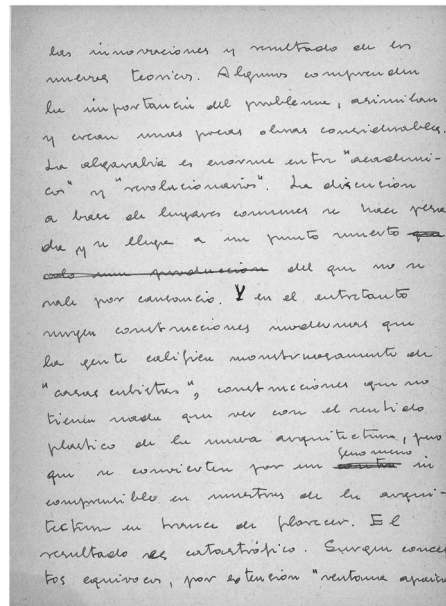 las innovaciones y resultado de las
nuevas teorías. Algunos comprenden
la importancia del problema, asimilan
y crean unas pocas obras considerables.
La algarabía es enorme entre "académi-
cos" y "revolucionarios". La discusión
a base de lugares comunes se hace pesa
da y se llega a un punto muerto que
solo una producción del que no se
sale por cansancio. Y en el entretanto
surgen construcciones modernas que
la gente califica monstruosamente de
"casas cubistas", construcciones que no
tienen nada que ver con el sentido
plastico de la nueva arquitectura, pero
fenomeno
que se convierten por un in
comprensible en muestras de la arqui-
tectura en trance de florecer. El
resultado es catastrófico. Surgen concep
tos equivocos, por extención "ventana apaisa